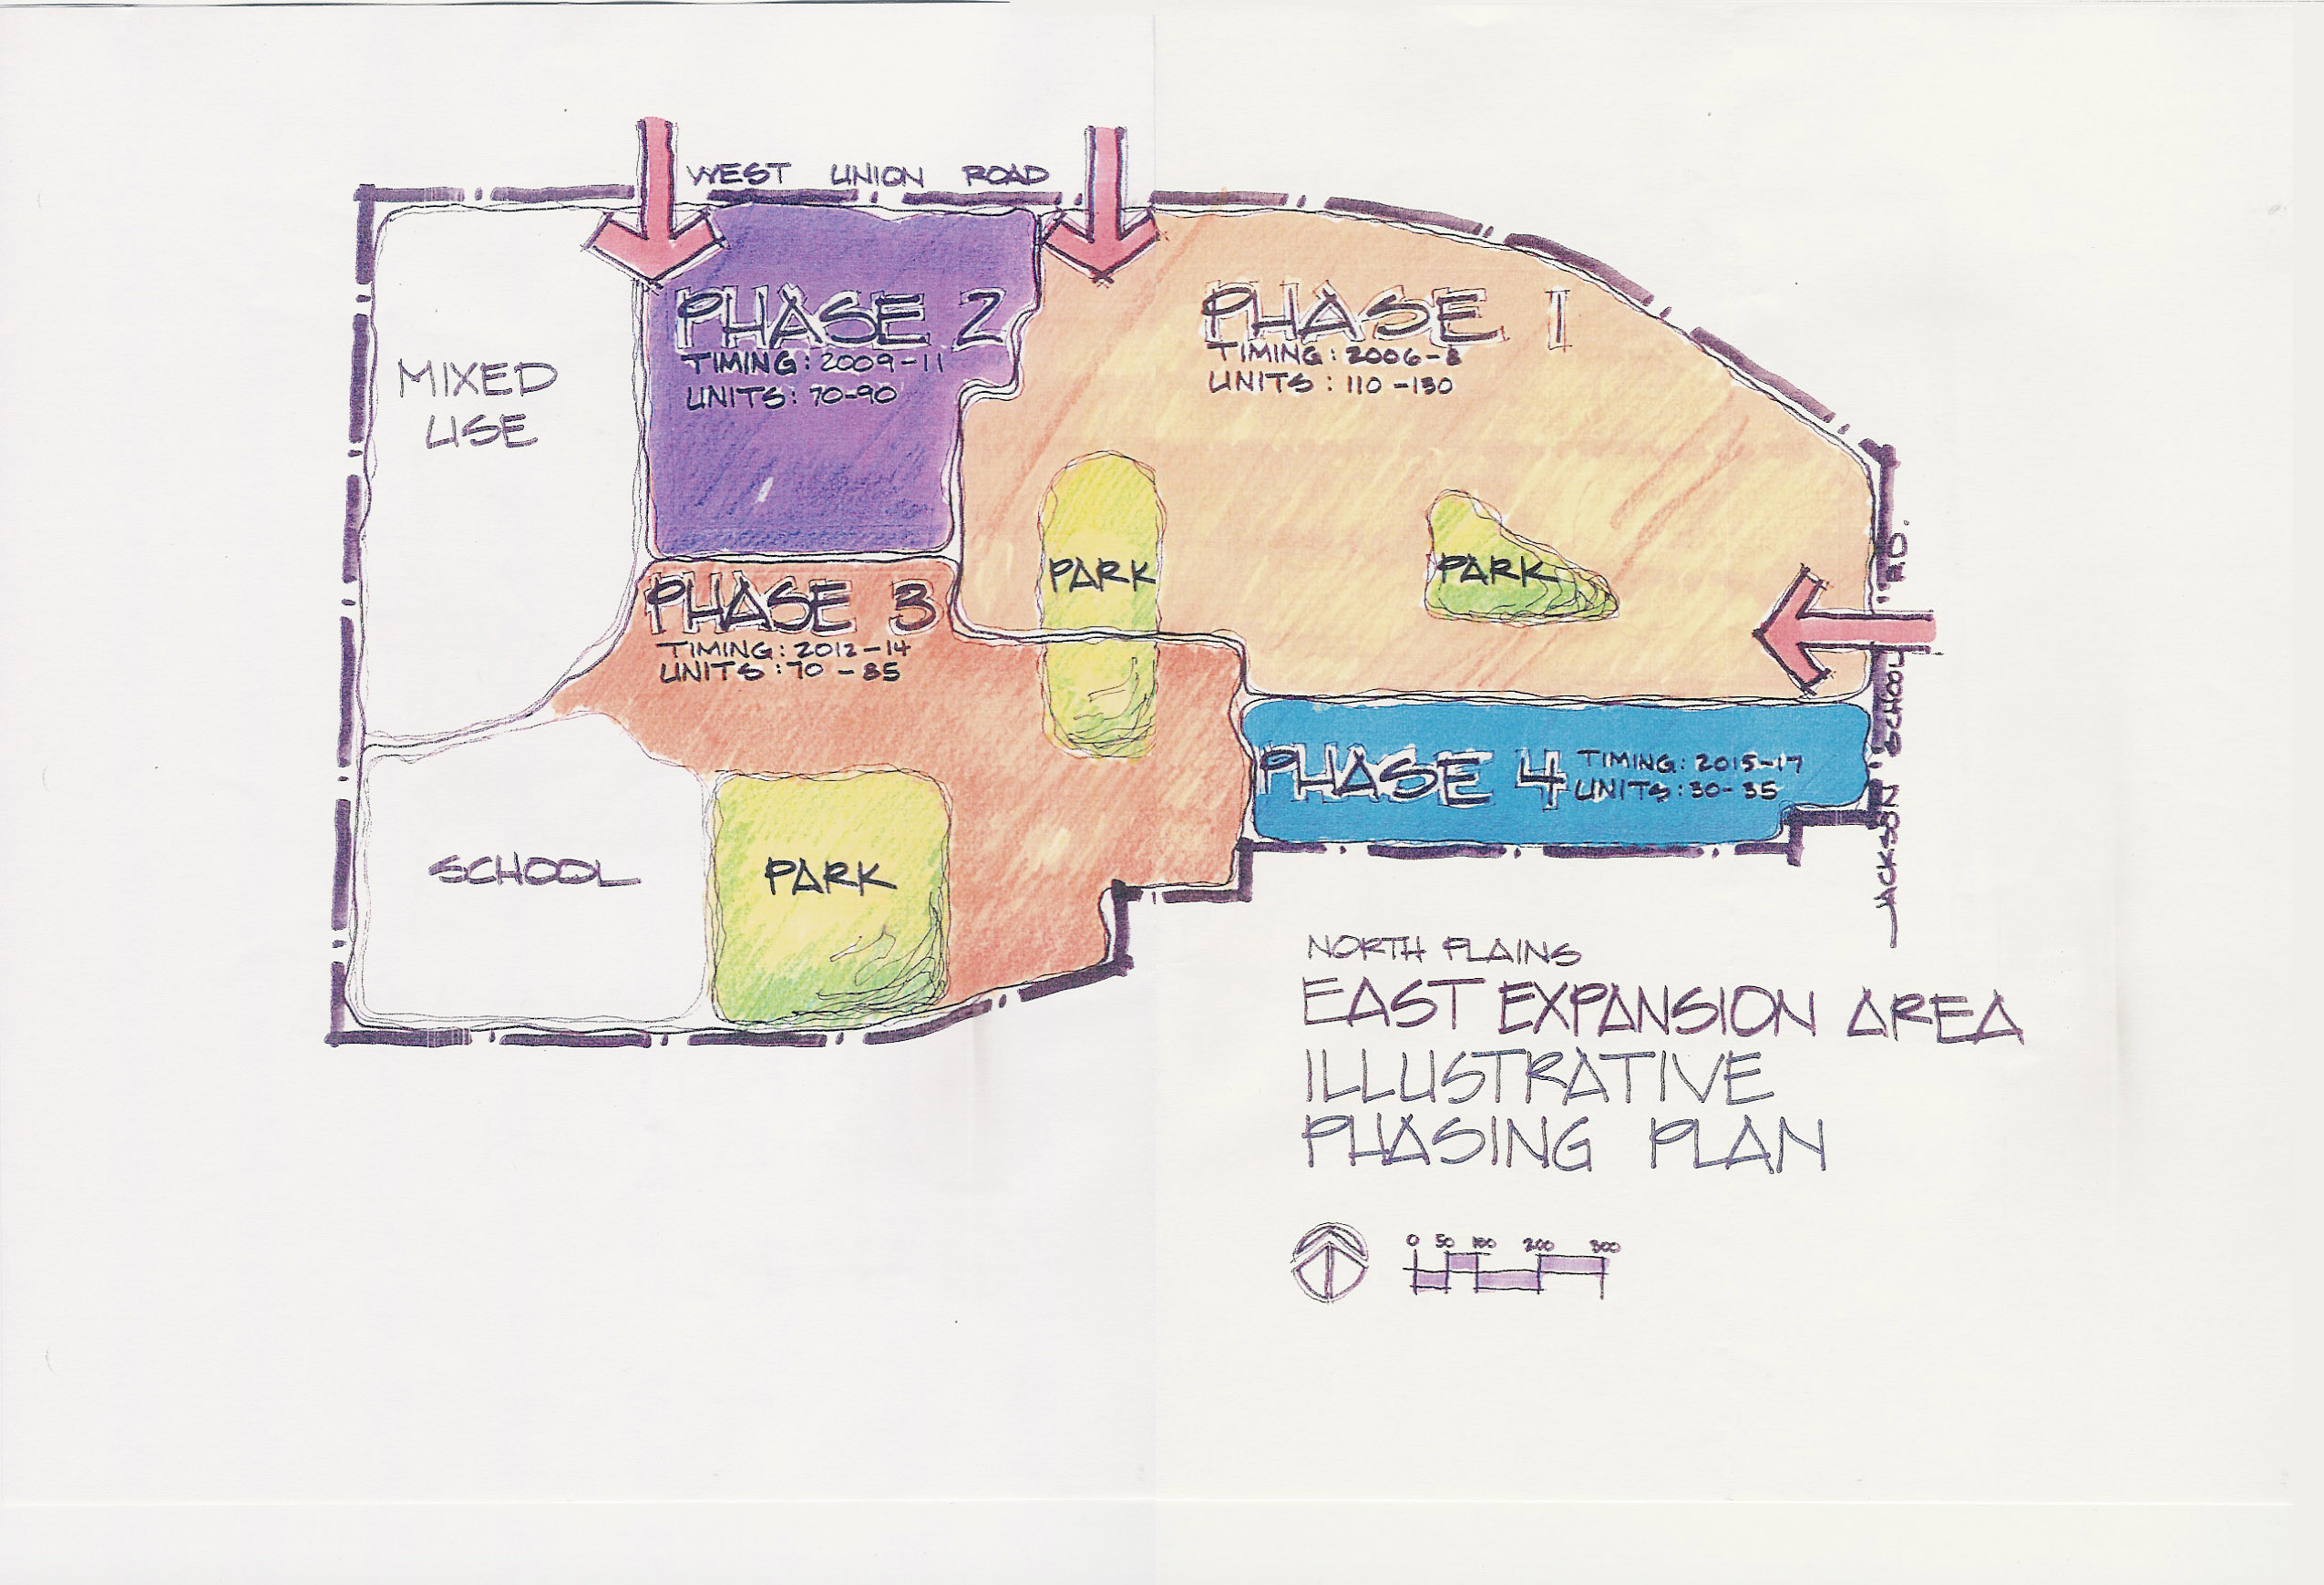 WEST UNION ROAD
PHASE 2
TIMING: 2009-11
UNITS: 70-90
PHASE 1
TIMING: 2006-8
UNITS: 110-130
MIXED
USE
PARK
PARK
PHASE 3
TIMING: 2012-14
UNITS: 70-85
PHASE 4
TIMING: 2015-17
UNITS: 30-35
SCHOOL
PARK
JACKSON SCHOOL RD.
NORTH PLAINS
EAST EXPANSION AREA
ILLUSTRATIVE
PHASING PLAN
0 50 100 200 300